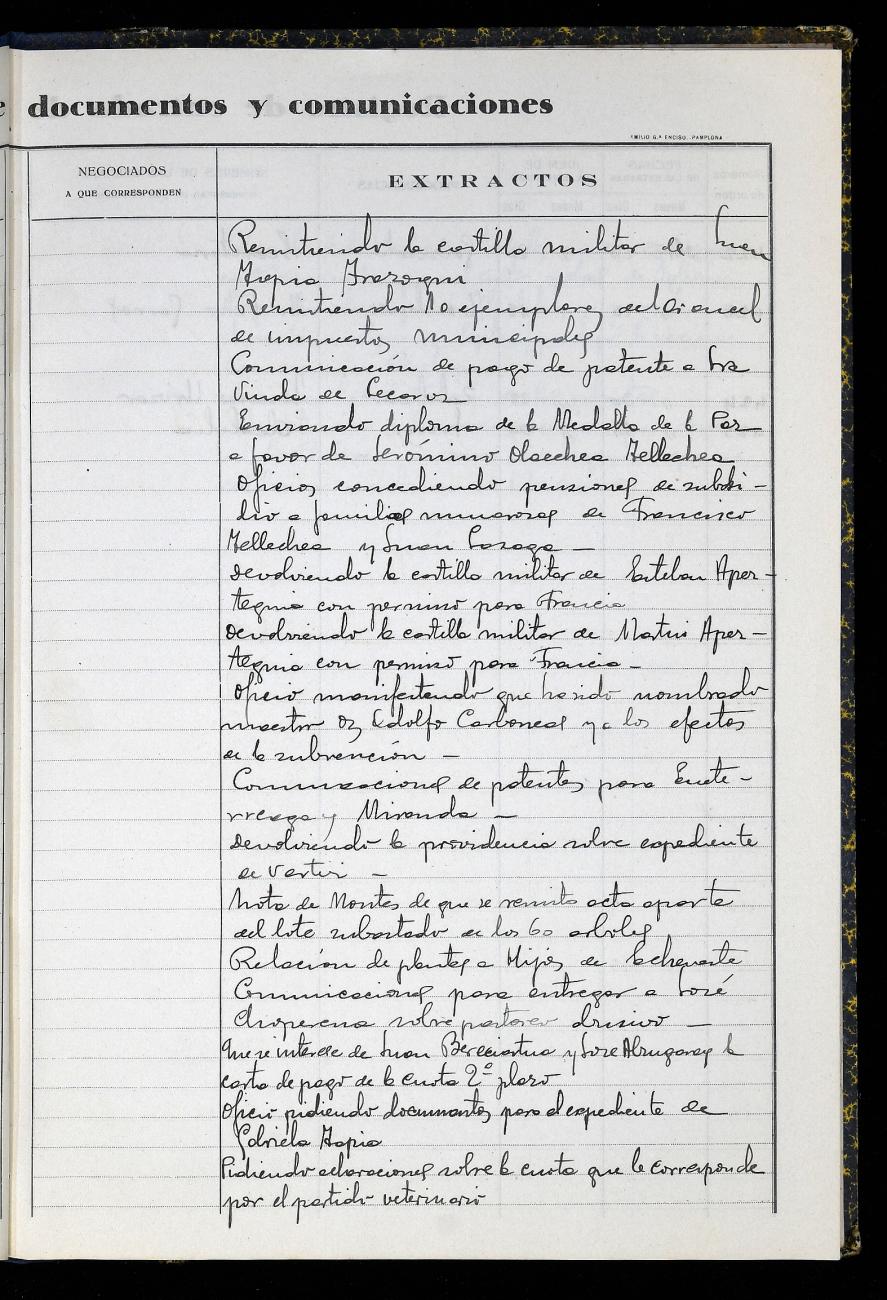 e documentos y comunicaciones
EMILIO G.ª ENCISO.-PAMPLONA
NEGOCIADOS
A QUE CORRESPONDEN
EXTRACTOS
Remitiendo la cartilla militar de Juan
Tapia Irazoqui
Remitiendo 10 ejemplares del arancel
de impuestos municipales
Comunicación de pago de patente a Sra
Viuda de Lecaroz
Enviando diploma de la Medalla de la Paz
a favor de Jerónimo Olaechea Tellechea
Oficios concediendo pensiones de subsi-
dio a familias numerosas de Francisco
Tellechea y Juan Lazaga —
Devolviendo la cartilla militar de Esteban Aper-
teguia con permiso para Francia
Devolviendo la cartilla militar de Martin Aper-
teguia con permiso para Francia —
Oficio manifestando que ha sido nombrado
maestro Dn Adolfo Carbonell y a los efectos
de la subvención —
Comunicaciones de patentes para
y Miranda —
Devolviendo la providencia sobre expediente
de Vertiz —
Nota de Montes de que se remita acta aparte
del lote subastado de los 60 arboles
Relación de plantas a Hijos de Echeverte
Comunicaciones para entregar a José
Choperena sobre pastoreo abusivo —
Que se interese de Juan Bereciartua y Jose Alzugaray la
carta de pago de la cuota 2º plazo
Oficio pidiendo documentos para el expediente de
Gabriela Tapia
Pidiendo aclaraciones sobre la cuota que le corresponde
por el partido veterinario